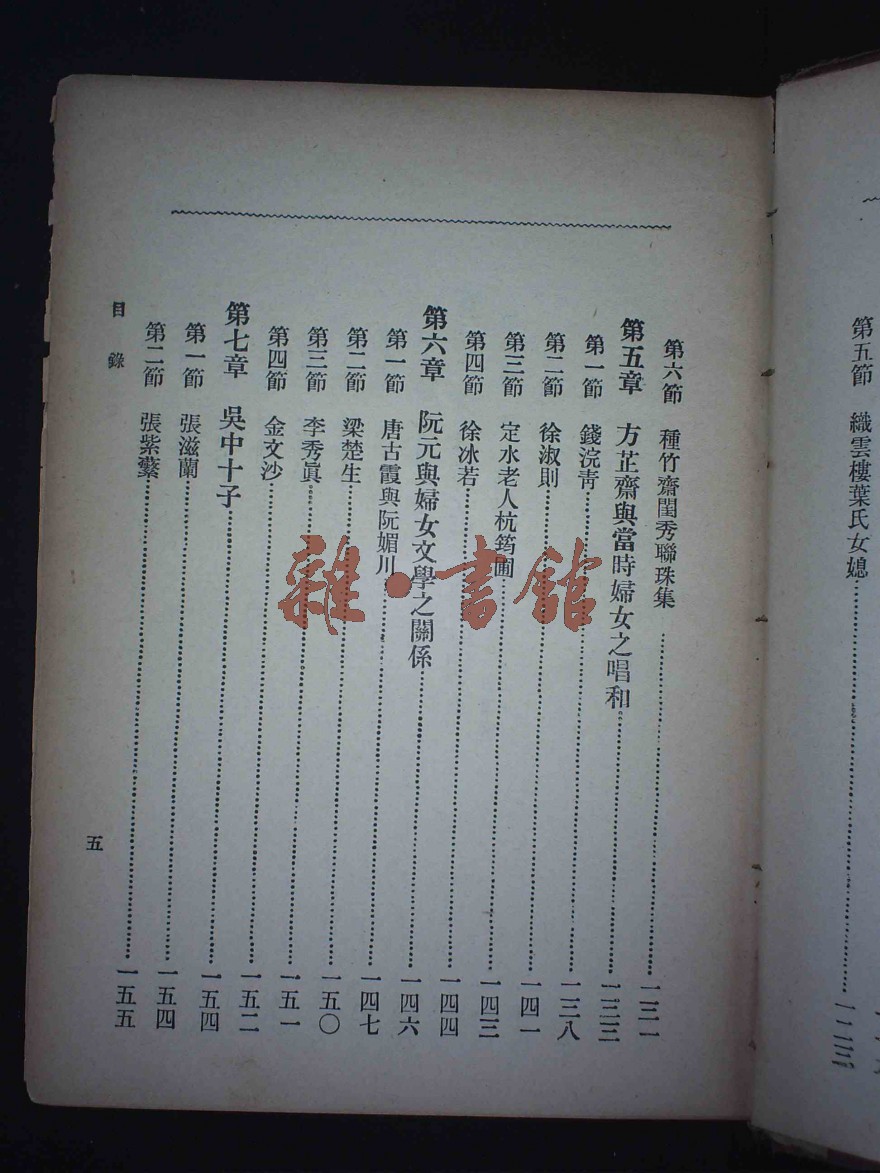 第五節 織雲樓葉氏女媳……一二三
第六節 種竹齋閨秀聯珠集……一三一
第五章 方芷齋與當時婦女之唱和……一三三
第一節 錢浣靑……一三八
第二節 徐淑則……一四一
第三節 定水老人杭筠圃……一四三
第四節 徐冰若……一四四
第六章 阮元與婦女文學之關係……一四六
第一節 唐古霞與阮媚川……一四七
第二節 梁楚生……一五〇
第三節 李秀眞……一五一
第四節 金文沙……一五二
第七章 吳中十子……一五四
第一節 張滋蘭……一五四
第二節 張紫蘩……一五五
目錄
五
雜·書館